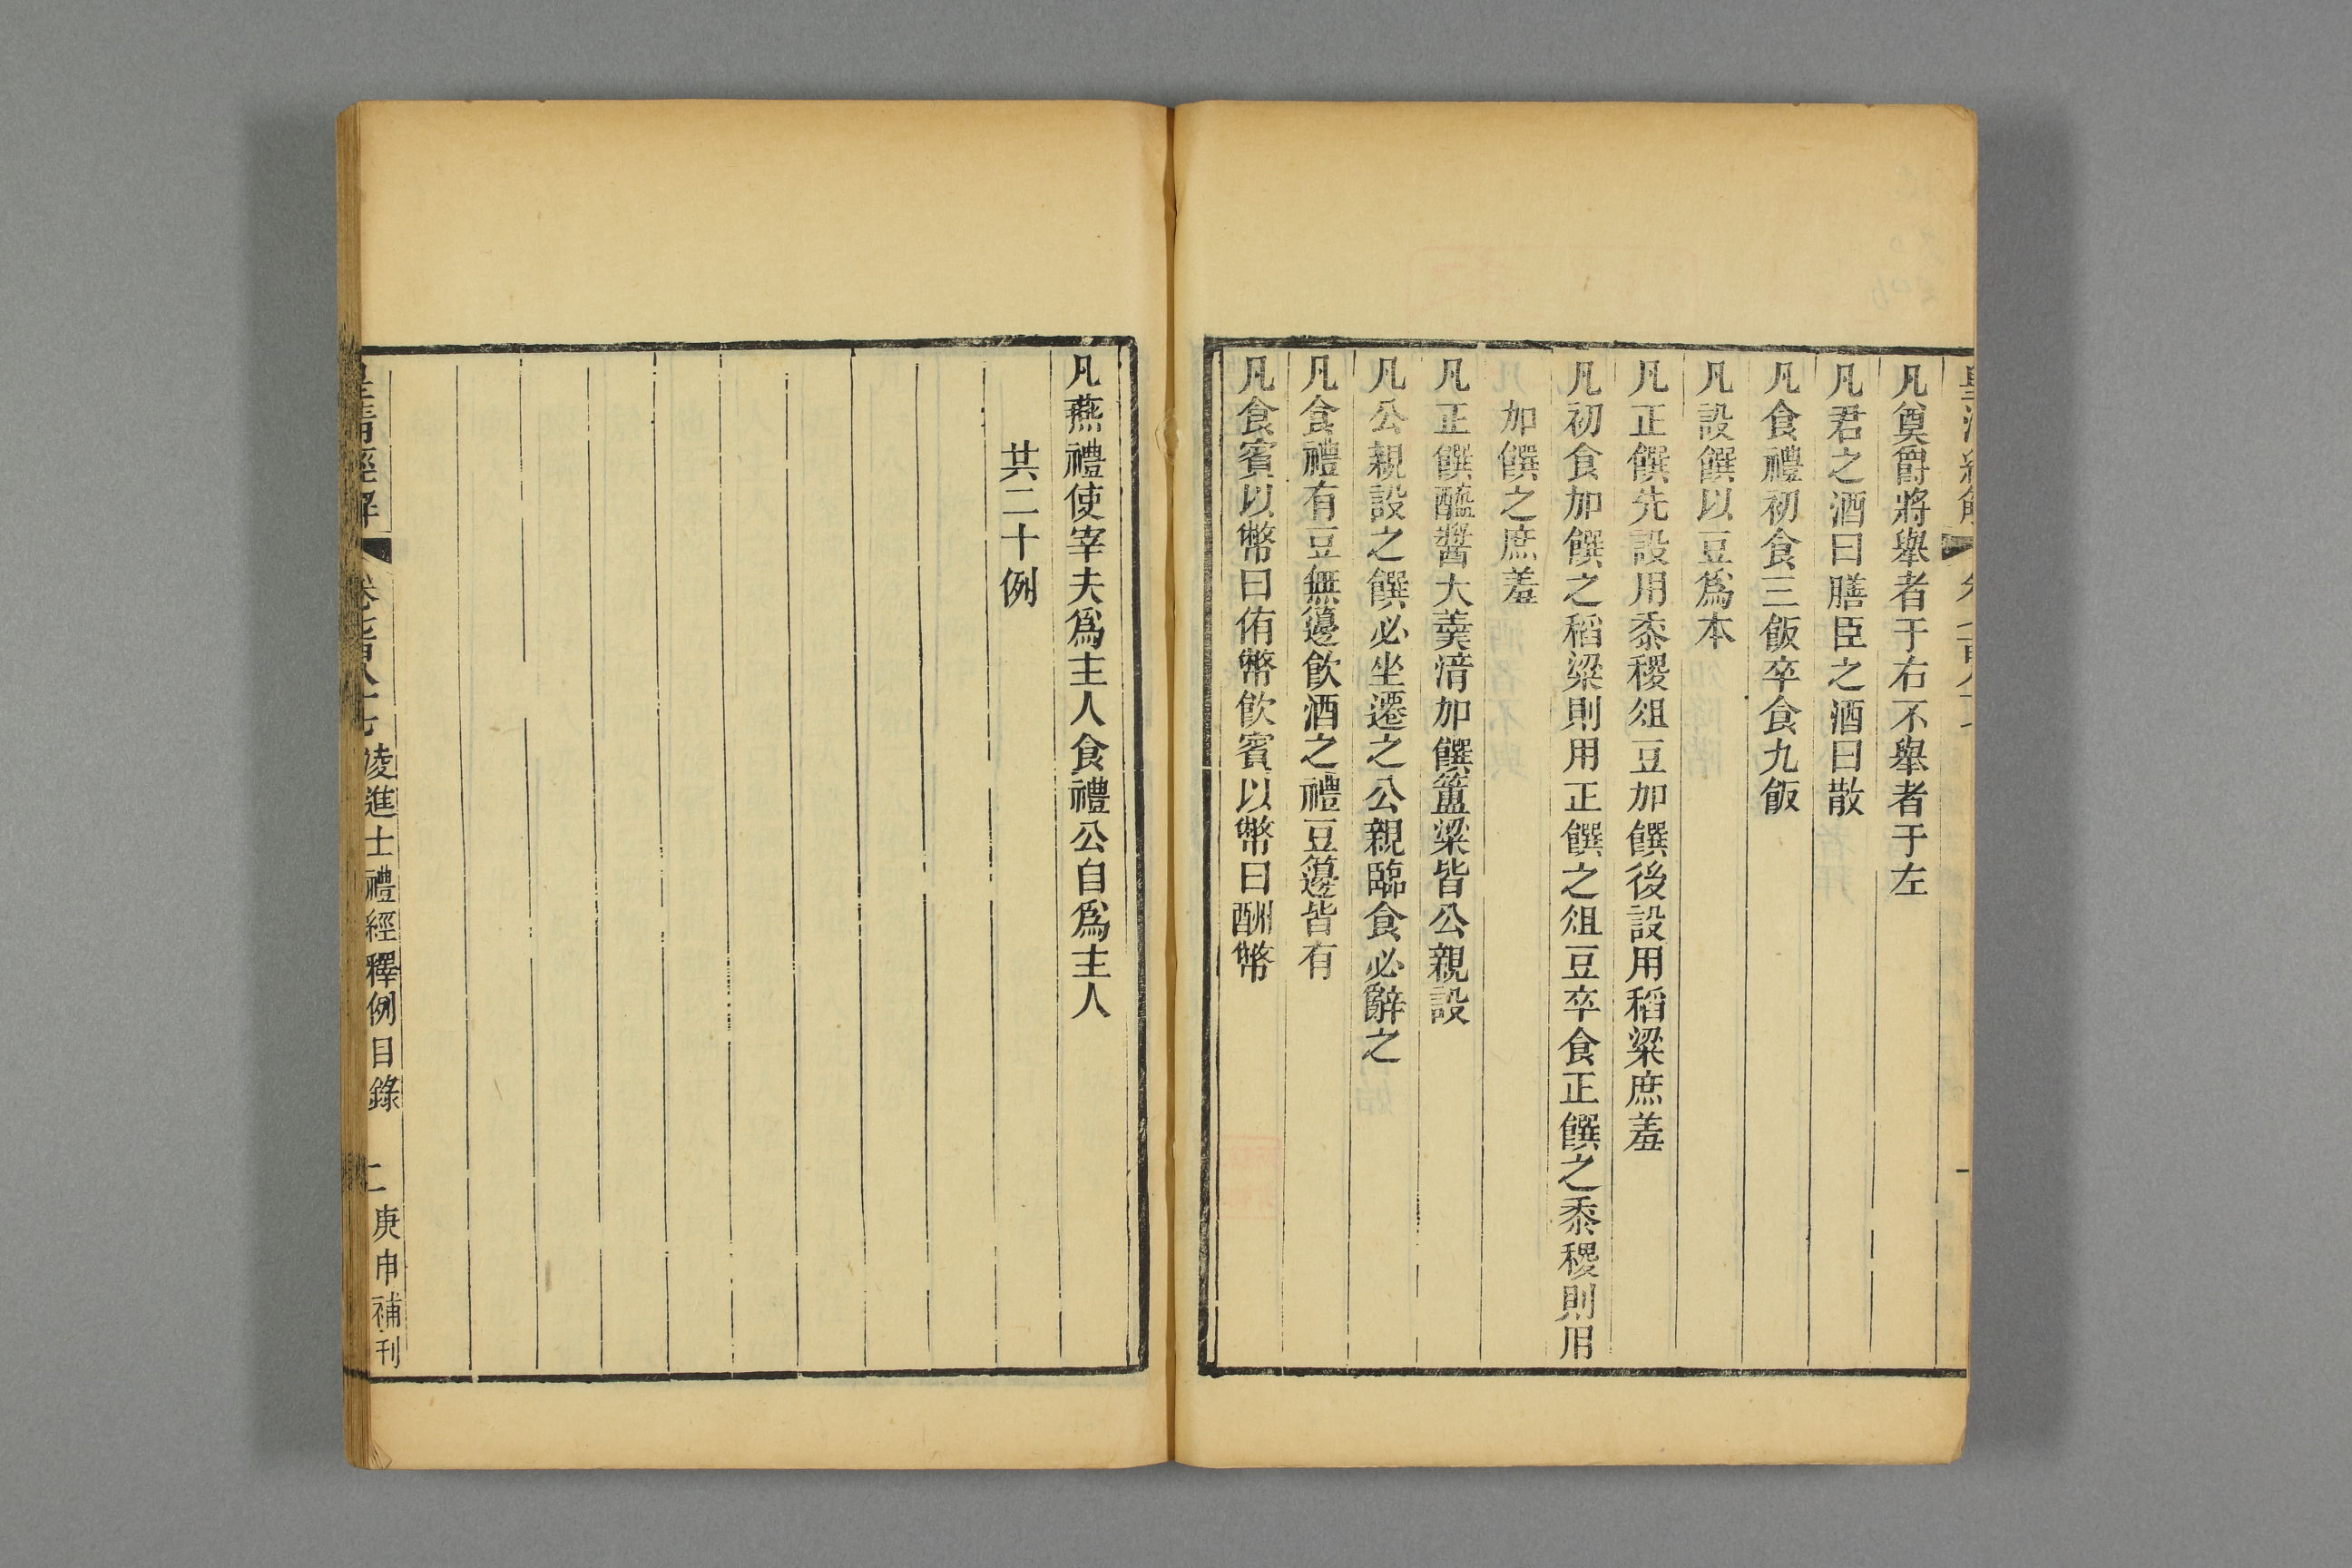 凡奠爵將舉者于右不舉者于左
凡君之酒曰膳臣之酒曰散
凡食禮初食三飯卒食九飯
凡設饌以豆爲本
凡正饌先設用黍稷俎豆加饌後設用稻粱庶羞
凡初食加饌之稻粱則用正饌之俎豆卒食正饌之黍稷則用
加饌之庶羞
凡正饌醯醬大羹湆加饌簠粱皆公親設
凡公親設之饌必坐遷之公親臨食必辭之
凡食禮有豆無籩飲酒之禮豆籩皆有
凡食賓以幣曰侑幣飲賓以幣曰酬幣
凡燕禮使宰夫爲主人食禮公自爲主人
共二十例
皇清經解 卷七百八十七 凌進士禮經釋例目錄 二 庚申補刊